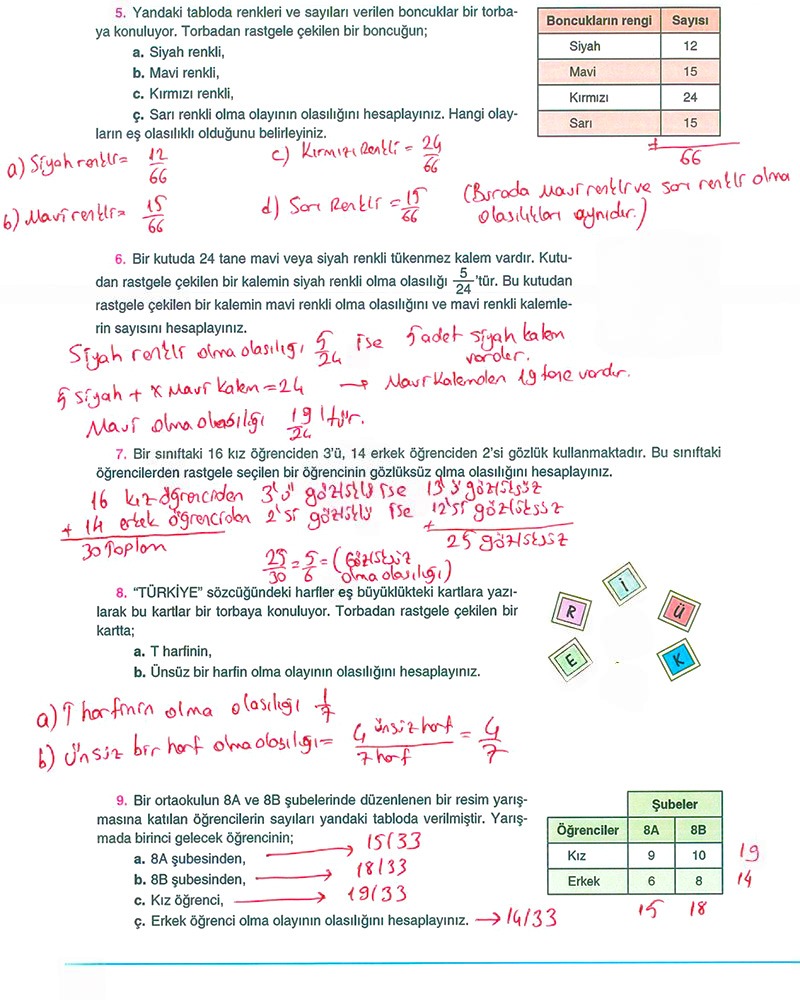 5. Yandaki tabloda renkleri ve sayıları verilen boncuklar bir torba-
ya konuluyor. Torbadan rastgele çekilen bir boncuğun;
a. Siyah renkli,
b. Mavi renkli,
c. Kırmızı renkli,
ç. Sarı renkli olma olayının olasılığını hesaplayınız. Hangi olay-
ların eş olasılıklı olduğunu belirleyiniz.
Boncukların rengi Sayısı
Siyah 12
Mavi 15
Kırmızı 24
Sarı 15
+
66
a) Siyah renkli = 12/66
c) Kırmızı Renkli = 24/66
b) Mavi renkli = 15/66
d) Sarı Renkli = 15/66
(Burada Mavi renkli ve sarı renkli olma
olasılıkları aynıdır.)
6. Bir kutuda 24 tane mavi veya siyah renkli tükenmez kalem vardır. Kutu-
dan rastgele çekilen bir kalemin siyah renkli olma olasılığı 5/24'tür. Bu kutudan
rastgele çekilen bir kalemin mavi renkli olma olasılığını ve mavi renkli kalemle-
rin sayısını hesaplayınız.
Siyah renkli olma olasılığı 5/24 ise 5 adet siyah kalem
vardır.
5 siyah + x Mavi kalem = 24 → Mavi Kalemden 19 tane vardır.
Mavi olma olasılığı 19/24 'tür.
7. Bir sınıftaki 16 kız öğrenciden 3'ü, 14 erkek öğrenciden 2'si gözlük kullanmaktadır. Bu sınıftaki
öğrencilerden rastgele seçilen bir öğrencinin gözlüksüz olma olasılığını hesaplayınız.
16 kız öğrenciden 3'ü gözlüklü ise 13'ü gözlüksüz
+ 14 erkek öğrenciden 2'si gözlüklü ise + 12'si gözlüksüz
30 Toplam 25 gözlüksüz
25/30 = 5/6 = (Gözlüksüz
olma olasılığı)
8. “TÜRKİYE” sözcüğündeki harfler eş büyüklükteki kartlara yazı-
larak bu kartlar bir torbaya konuluyor. Torbadan rastgele çekilen bir
kartta;
a. T harfinin,
b. Ünsüz bir harfin olma olayının olasılığını hesaplayınız.
İ
R
Ü
E
K
a) T harfinin olma olasılığı 1/7
b) Ünsüz bir harf olma olasılığı = 4 ünsüz harf/7 harf = 4/7
9. Bir ortaokulun 8A ve 8B şubelerinde düzenlenen bir resim yarış-
masına katılan öğrencilerin sayıları yandaki tabloda verilmiştir. Yarış-
mada birinci gelecek öğrencinin;
a. 8A şubesinden, → 15/33
b. 8B şubesinden, → 18/33
c. Kız öğrenci, → 19/33
ç. Erkek öğrenci olma olayının olasılığını hesaplayınız. → 14/33
Şubeler
Öğrenciler 8A 8B
Kız 9 10 19
Erkek 6 8 14
15 18